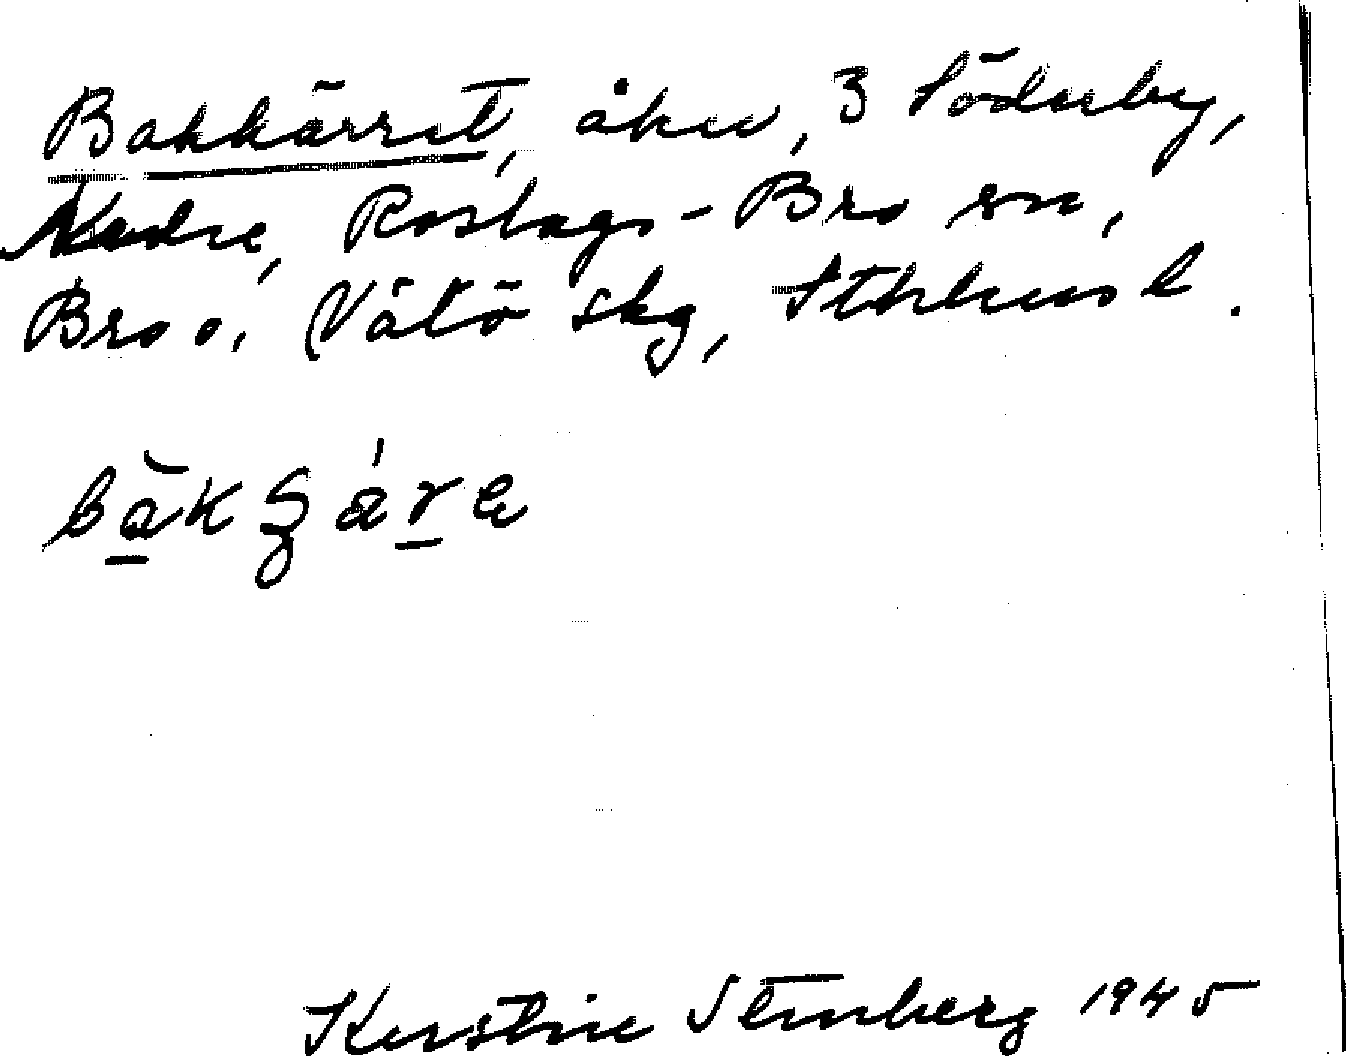 Bakkärret, åker, 3 Söderby,
Nedre, Roslags-Bro sn,
Bro o. Vätö skg, Sthlms l.
Kerstin Stenberg 1945